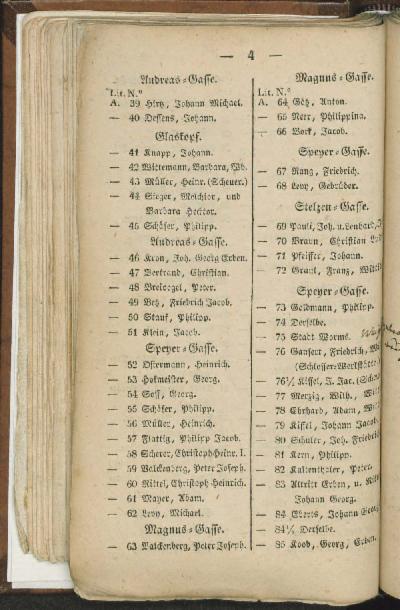 — 4 —
Andreas-Gasse.
Lit. N.º
A. 39 Hirt, Johann Michael.
— 40 Dessens, Johann.
Glaskopf.
— 41 Knapp, Johann.
— 42 Wittemann, Barbara, Wb.
— 43 Müller, Heinr. (Scheuer.)
— 44 Sieger, Melchior, und
Barbara Hector.
— 45 Schäfer, Philipp.
Andreas-Gasse.
— 46 Kron, Joh. Georg Erben.
— 47 Bertrand, Christian.
— 48 Peter.
— 49 Betz, Friedrich Jacob.
— 50 Stauf, Philipp.
— 51 Klein, Jacob.
Speyer-Gasse.
— 52 Ostermann, Heinrich.
— 53 Hofmeister, Georg.
— 54 Georg.
— 55 Schäfer, Philipp.
— 56 Müller, Heinrich.
— 57 Philipp Jacob.
— 58 Scherer, Christoph Heinr. I.
— 59 Valckenberg, Peter Joseph.
— 60 Christoph Heinrich.
— 61 Mayer, Adam.
— 62 Levy, Michael.
Magnus-Gasse.
— 63 Valckenberg, Peter Joseph.
Magnus-Gasse.
Lit. N.º
A. 64 Götz, Anton.
— 65 Neer, Philippina.
— 66 Bork, Jacob.
Speyer-Gasse.
— 67 Nang, Friedrich.
— 68 Levy, Gebrüder.
Stelzen-Gasse.
— 69 Pauli, Joh. u. Lenhard,
— 70 Braun, Christian
— 71 Pfeiffer, Johann.
— 72 Graul, Franz,
Speyer-Gasse.
— 73 Goldmann, Philipp.
— 74 Derselbe.
— 75 Stadt Worms.
— 76 Gansert, Friedrich,
(Schlosser-Werkstätte)
— 76½ Kissel, J. Jac.
— 77 Merzig, Wilh.,
— 78 Ehrhard, Adam,
— 79 Kissel, Johann Jacob
— 80 Schuler, Joh.
— 81 Kern, Philipp.
— 82 Kaltenthaler, Peter.
— 83 Altritt Erben, u.
Johann Georg.
— 84 Eberts, Johann
— 84½ Derselbe.
— 85 Koob, Georg, Erben.